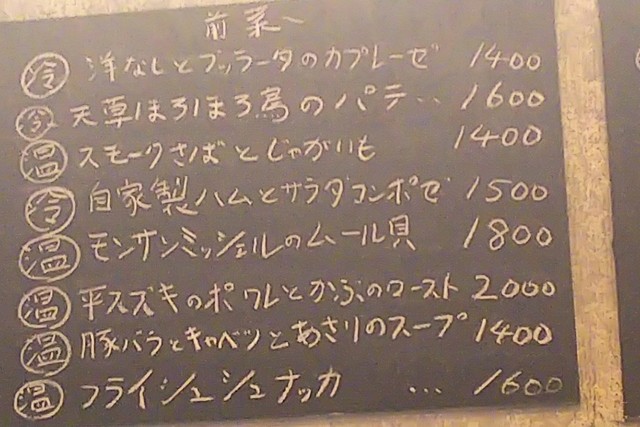 前菜～
冷 洋なしとブッラータのカプレーゼ 1400
冷 天草ほろほろ鳥のパテ‥ 1600
温 スモークさばとじゃがいも 1400
冷 自家製ハムとサラダコンポゼ 1500
温 モンサンミッシェルのムール貝 1800
温 平スズキのポワレとかぶのロースト 2000
温 豚バラとキャベツとあさりのスープ 1400
温 フライシュシュナッカ … 1600